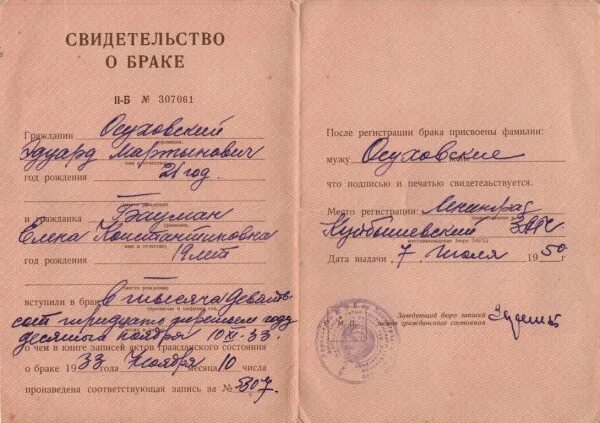 СВИДЕТЕЛЬСТВО
О БРАКЕ
II-Б № 307061
Гражданин Осуховский
фамилия,
Эдуард Мартынович
имя и отчество
год рождения 21 год.
место рождения
и гражданка Бауман
фамилия,
Елена Константиновна
имя и отчество
год рождения 19 лет
место рождения
вступили в брак в тысяча девять-
прописью и цифрами год,
сот тридцать третьем году
десятого ноября 10/XI-33.
о чем в книге записей актов гражданского состояния
о браке 1933 года Ноября месяца 10 числа
произведена соответствующая запись за № 5307
После регистрации брака присвоены фамилии:
мужу Осуховские
что подписью и печатью свидетельствуется.
Место регистрации: Ленинград
Куйбышевский ЗАГС
местонахождение бюро ЗАГС
Дата выдачи 7 Июля 1950 г.
М. П.
Заведующий бюро записей
актов гражданского состояния